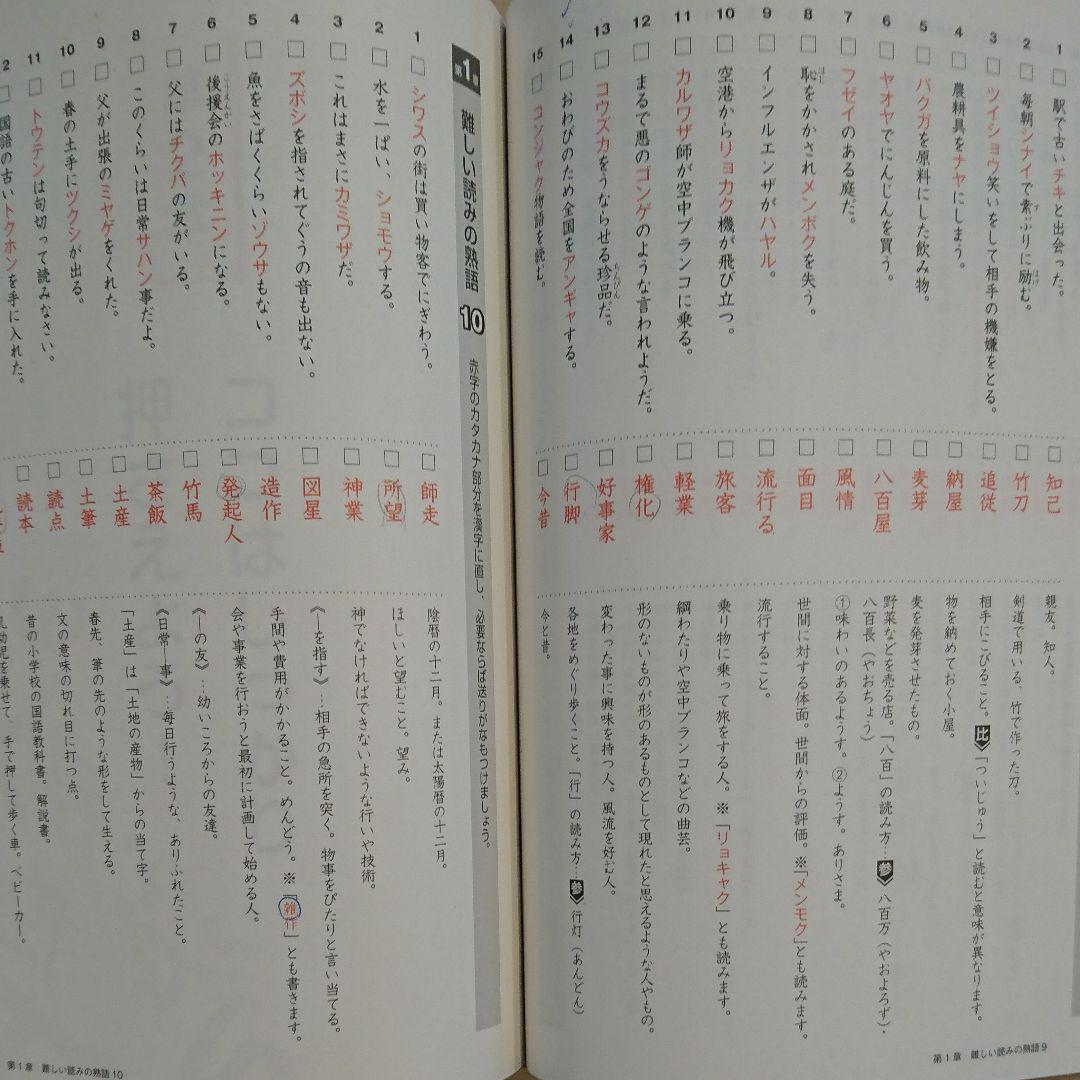 1 □ 駅で古いチキと出会った。
□ 知己
親友。知人。
2 □ 毎朝シナイで素ぶりに励む。
□ 竹刀
剣道で用いる、竹で作った刀。
3 □ ツイショウ笑いをして相手の機嫌をとる。
□ 追従
相手にこびること。比「ついじゅう」と読むと意味が異なります。
4 □ 農耕具をナヤにしまう。
□ 納屋
物を納めておく小屋。
5 □ バクガを原料にした飲み物。
□ 麦芽
麦を発芽させたもの。
6 □ ヤオヤでにんじんを買う。
□ 八百屋
野菜などを売る店。「八百」の読み方…参 八百万(やおよろず)・
八百長(やおちょう)
7 □ フゼイのある庭だ。
□ 風情
①味わいのあるようす。②ようす。ありさま。
8 □ 恥をかかされメンボクを失う。
□ 面目
世間に対する体面。世間からの評価。※「メンモク」とも読みます。
9 □ インフルエンザがハヤル。
□ 流行る
流行すること。
10 □ 空港からリョカク機が飛び立つ。
□ 旅客
乗り物に乗って旅をする人。※「リョキャク」とも読みます。
11 □ カルワザ師が空中ブランコに乗る。
□ 軽業
綱わたりや空中ブランコなどの曲芸。
12 □ まるで悪のゴンゲのような言われようだ。
□ 権化
形のないものが形のあるものとして現れたと思えるような人やもの。
13 □ コウズカをうならせる珍品だ。
□ 好事家
変わった事に興味を持つ人。風流を好む人。
14 □ おわびのため全国をアンギャする。
□ 行脚
各地をめぐり歩くこと。「行」の読み方…参 行灯(あんどん)
15 □ コンジャク物語を読む。
□ 今昔
今と昔。
第1章 難しい読みの熟語9
第1章 難しい読みの熟語 10 赤字のカタカナ部分を漢字に直し、必要ならば送りがなもつけましょう。
1 □ シワスの街は買い物客でにぎわう。
□ 師走
陰暦の十二月。または太陽暦の十二月。
2 □ 水を一ぱい、ショモウする。
□ 所望
ほしいと望むこと。望み。
3 □ これはまさにカミワザだ。
□ 神業
神でなければできないような行いや技術。
4 □ ズボシを指されてぐうの音も出ない。
□ 図星
《―を指す》…相手の急所を突く。物事をぴたりと言い当てる。
5 □ 魚をさばくくらいゾウサもない。
□ 造作
手間や費用がかかること。めんどう。※「雑作」とも書きます。
6 □ 後援会のホッキニンになる。
□ 発起人
会や事業を行おうと最初に計画して始める人。
7 □ 父にはチクバの友がいる。
□ 竹馬
《―の友》…幼いころからの友達。
8 □ このくらいは日常サハン事だよ。
□ 茶飯
《日常―事》…毎日行うような、ありふれたこと。
9 □ 父が出張のミヤゲをくれた。
□ 土産
「土産」は「土地の産物」からの当て字。
10 □ 春の土手にツクシが出る。
□ 土筆
春先、筆の先のような形をして生える。
11 □ トウテンは句切って読みなさい。
□ 読点
文の意味の切れ目に打つ点。
2 □ 国語の古いトクホンを手に入れた。
□ 読本
昔の小学校の国語教科書。解説書。
乳幼児を乗せて、手で押して歩く車。ベビーカー。
第1章 難しい読みの熟語10